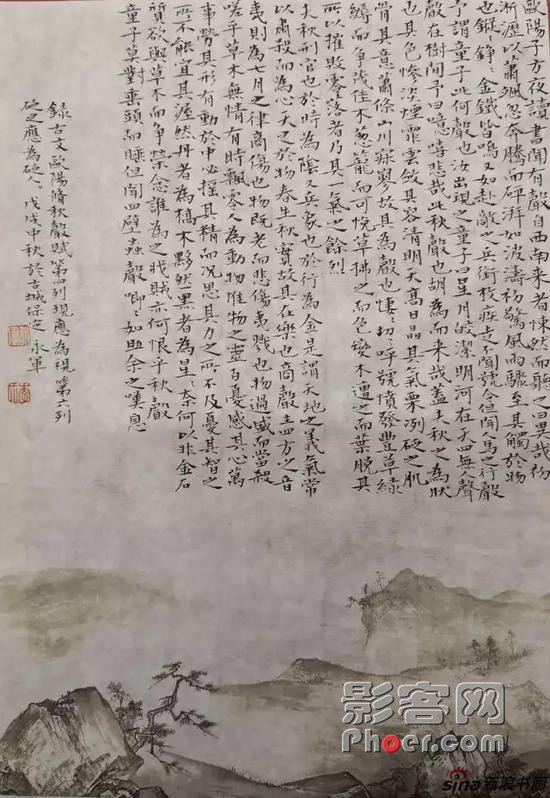 歐陽子方夜讀書聞有聲自西南来者悚然而聽之曰異哉初
淅瀝以蕭颯忽奔騰而砰湃如波濤初驚風雨驟至其觸於物
也鏦〻錚〻金鐵皆鳴如赴敵之兵銜枚疾走不聞號令但聞人馬之行聲
予謂童子此何聲也汝出現之童子曰星月皎潔明河在天四無人聲
聲在樹間予曰噫嘻悲哉此秋聲也胡為而来哉蓋夫秋之為狀
也其色慘淡煙霏雲斂其容清明天高日晶其氣栗冽砭之肌
骨其意蕭條山川寂寥故其為聲也悽〻切〻呼號憤發豐草綠
縟而爭茂佳木蔥籠而可悅草拂之而色變木遭之而葉脫其
所以摧敗零落者乃其一氣之餘烈
夫秋刑官也於時為陰又兵象也於行為金是謂天地之義氣常
以肅殺而為心天之於物春生秋實故其在樂也商聲主四方之音
夷則為七月之律商傷也物既老而悲傷夷戮也物過盛而當殺
嗟乎草木無情有時飄零人為動物惟物之靈百憂感其心萬
事勞其形有動於中必搖其精而況思其力之所不及憂其智之
所不能宜其渥然丹者為槁木黟然黑者為星〻奈何以非金石
質欲與草木而爭榮念誰為之戕賊亦何恨乎秋聲
童子莫對垂頭而睡但聞四壁蟲聲唧〻如助余之嘆息
錄古文歐陽脩秋聲賦第四列現應為視第六列
砭之應為砭人戊戌中秋於古城保定永軍
影客网
Phoer.com
sina新浪书画